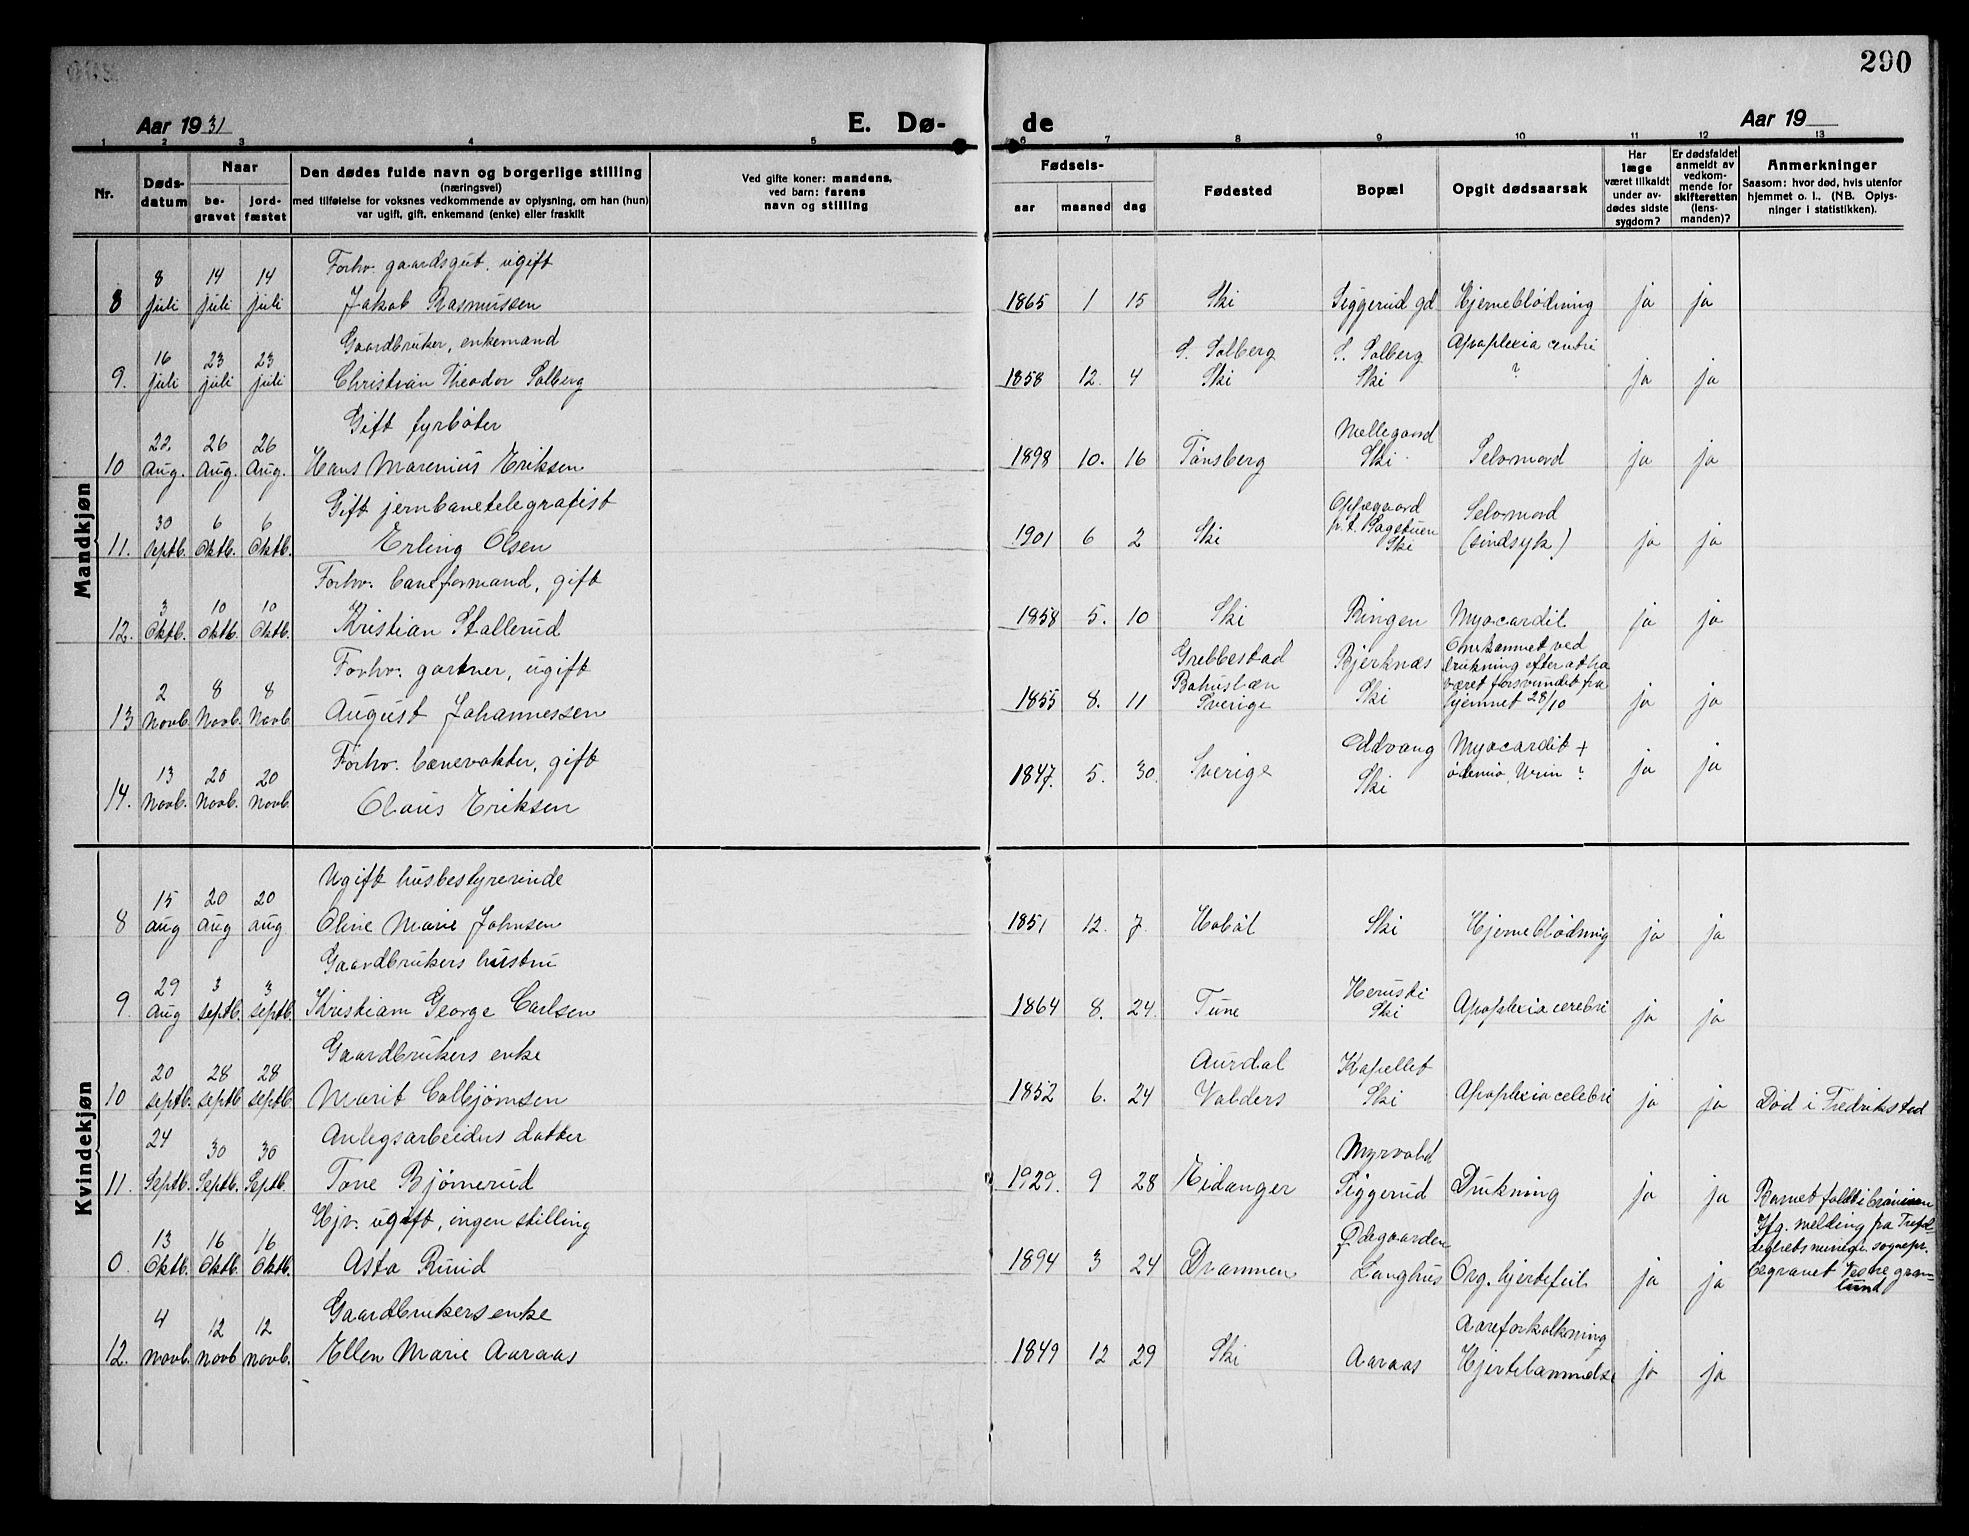 290
Aar 1931
E. Dø-
de
Aar 19
1 2 3 4 5 6 7 8 9 10 11 12 13
Nr.
Døds-
datum
Naar
be-
gravet
jord-
fæstet
Den dødes fulde navn og borgerlige stilling
(næringsvei)
med tilføielse for voksnes vedkommende av oplysning, om han (hun)
var ugift, gift, enkemand (enke) eller fraskilt
Ved gifte koner: mandens,
ved barn: farens
navn og stilling
Fødsels-
aar maaned dag
Fødested
Bopæl
Opgit dødsaarsak
Har
læge
været tilkaldt
under av-
dødes sidste
sygdom?
Er dødsfaldet
anmeldt av
vedkom-
mende for
skifteretten
(lens-
manden)?
Anmerkninger
Saasom: hvor død, hvis utenfor
hjemmet o. l., (NB. Oplys-
ninger i statistikken).
Mandkjøn
8 14 14 Forhv. gaardsgut, ugift
8 juli juli juli Jakob Rasmussen 1865 1 15 Ski Siggerud gd Hjerneblødning ja ja
Gaardbruker, enkemand
16 23 23 S. Solberg S. Solberg Apoplexia centri
9. juli juli juli Christian Theodor Solberg 1858 12. 4 Ski Ski ? ja ja
Gift fyrbøter
22. 26 26 Mellegaard
10 Aug. Aug. Aug. Hans Marenius Eriksen 1898 10. 16 Tønsberg Ski Selvmord ja ja
Gift jernbanetelegrafist
30 6 6 Oppegaard Selvmord
p.t. Sagstuen
11. septb. Oktb. Oktb. Erling Olsen 1901 6 2 Ski Ski (sindsyk) ja ja
Forhv. baneformand, gift
3 10 10
12. Oktb. Oktb. Oktb. Kristian Stallerud 1858 5. 10 Ski Ringen Myocardit ja ja
Forhv. gartner, ugift
2 8 8 Grebbestad Bjerknæs Omkommet ved
Bahuslæn drukning efter at ha
været forsvundet fra
13 Novb. Novb. Novb. August Johannessen 1855 8. 11 Sverige Ski hjemmet 28/10 ja ja
Forhv. banevokter, gift
13 20 20 Oddvang Myocardit +
14. Novb. Novb. Novb. Olaus Eriksen 1847. 5. 30. Sverige Ski ja ja
Kvindekjøn
Ugift husbestyrerinde
15 20 20
8 aug aug aug Oline Marie Johnsen 1851 12. 7. Hobøl Ski Hjerneblødning ja ja
Gaardbrukers hustru
29 3 3 Ski
9. aug septb. septb. Kristiam George Carlsen 1864 8. 24. Tune Apoplexia cerebri ja ja
Gaardbrukers enke
20 28 28 Aurdal Kapellet
10 septb. septb. septb. Marit Colbjørnsen 1852 6. 24 Valders Ski Apoplexia celebri ja ja Død i Fredrikstad
Anlegsarbeiders datter
24 30 30 Myrvold
11. Septb. Septb. Septb. Tone Bjørnerud 1929. 9 28 Eidanger Siggerud Drukning ja ja Barnet faldt i brønnen
Hjv. ugift, ingen stilling
13 16 16 Ødegaarden Ifg. melding fra
sognepr.
0. Oktb. Oktb. Oktb. Asta Ruud 1894 3 24 Drammen Langhus Org. hjertefeil ja ja begravet Vestre grav-
lund
Gaardbrukers enke
4 12 12 Aareforkalkning
12. novb. novb novb. Ellen Marie Aaraas 1849 12 29 Ski Aaraas Hjertelammelse ja ja